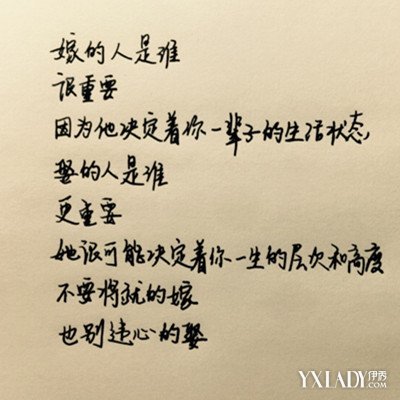 嫁的人是谁
很重要
因为他决定着你一辈子的生活状态
娶的人是谁
更重要
她很可能决定着你一生的层次和高度
不要将就的嫁
也别违心的娶
YXLADY伊秀.COM